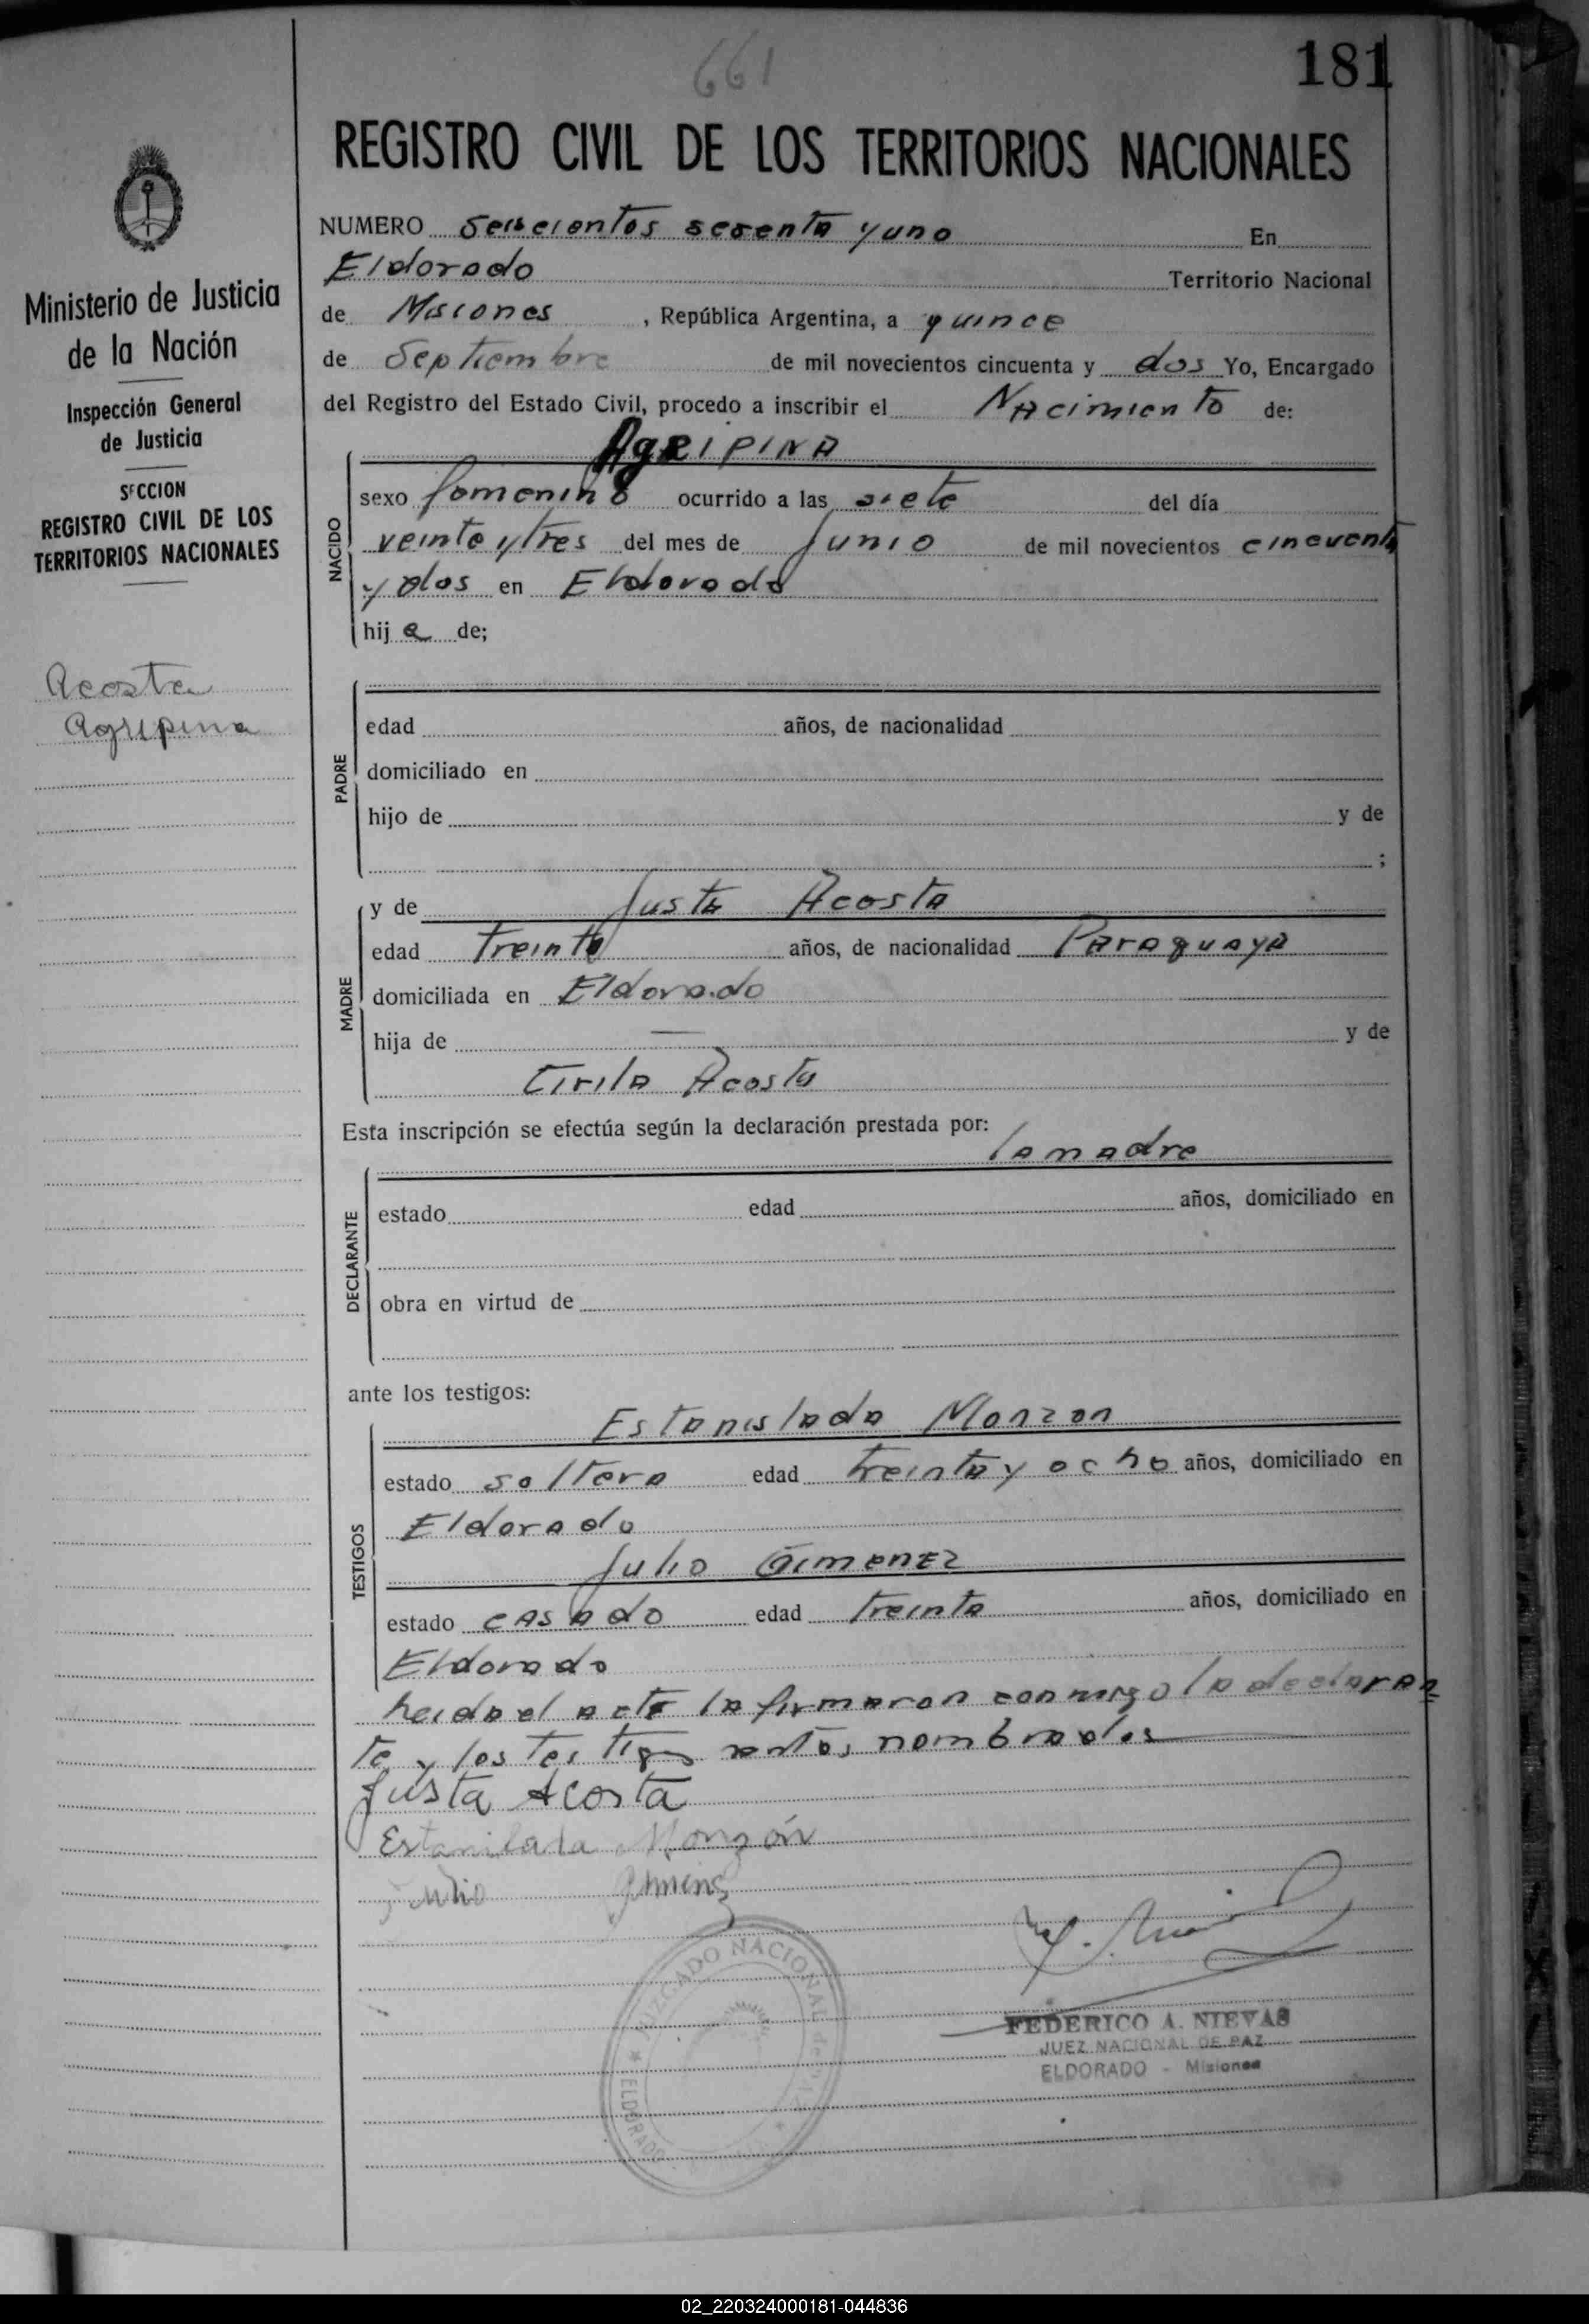 661
181
REGISTRO CIVIL DE LOS TERRITORIOS NACIONALES
Ministerio de Justicia
de la Nación
Inspección General
de Justicia
SECCION
REGISTRO CIVIL DE LOS
TERRITORIOS NACIONALES
Acosta
Agripina
NUMERO Seiscientos sesenta y uno En
Eldorado Territorio Nacional
de Misiones, República Argentina, a quince
de Septiembre de mil novecientos cincuenta y dos Yo, Encargado
del Registro del Estado Civil, procedo a inscribir el Nacimiento de:
AgRIPINA
NACIDO
sexo femenino ocurrido a las siete del día
veinte y tres del mes de Junio de mil novecientos cincuenta
y dos en Eldorado
hij a de;
PADRE
edad años, de nacionalidad
domiciliado en
hijo de y de
;
MADRE
y de Justa Acosta
edad Treinta años, de nacionalidad Paraguaya
domiciliada en Eldorado
hija de — y de
Cirila Acosta
Esta inscripción se efectúa según la declaración prestada por:
la madre
DECLARANTE
estado edad años, domiciliado en
obra en virtud de
ante los testigos:
TESTIGOS
Estanislada Monzon
estado soltera edad treinta y ocho años, domiciliado en
Eldorado
Julio Gimenez
estado casado edad treinta años, domiciliado en
Eldorado
Leida el acta la firmaron conmigo la declaran
te y los testigos antes nombrados
Justa Acosta
Estanilada Monzón
Julio Jimenez
JUZGADO NACIONAL de PAZ
ELDORADO
FEDERICO A. NIEVAS
JUEZ NACIONAL DE PAZ
ELDORADO - Misiones
02_220324000181-044836